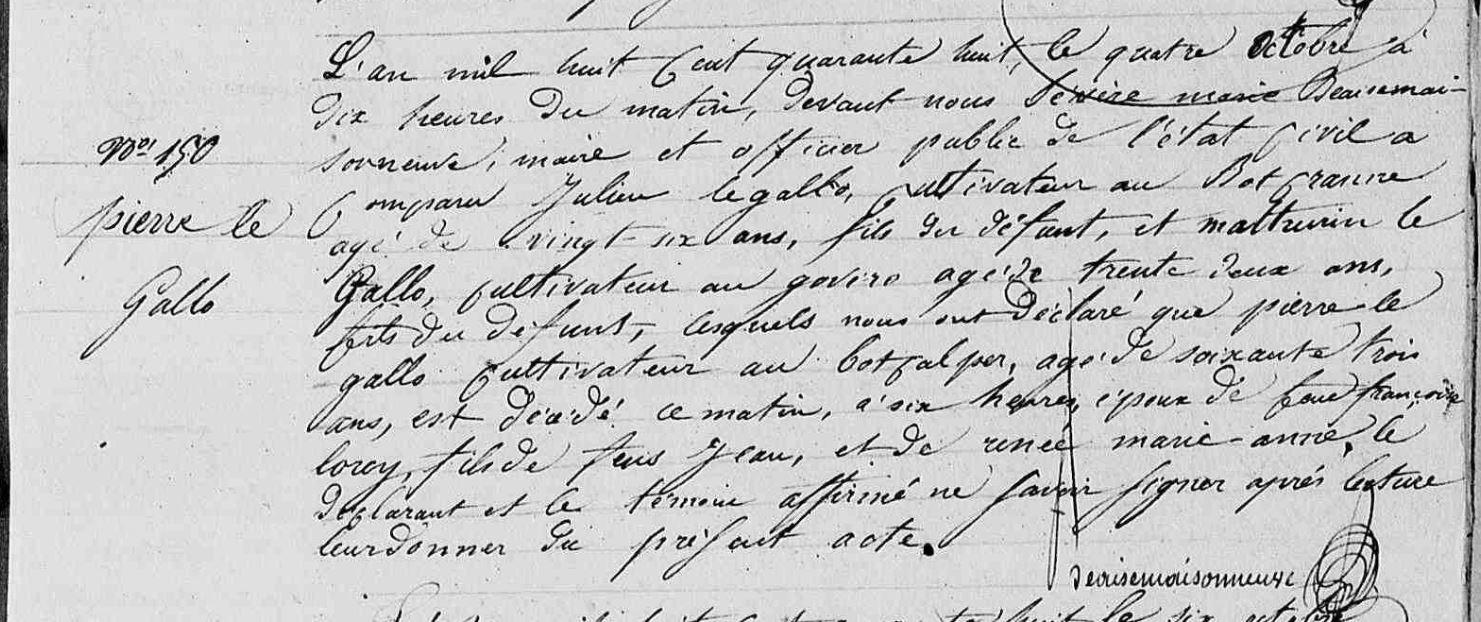 L'an mil huit cent quarante huit, le quatre octobre à
dix heures du matin, devant nous marie Beausemai-
sonneuve, maire et officier public de l'état civil a
Comparu Julien legallo, cultivateur au
agé de vingt-six ans, fils du défunt, et mathurin le
Gallo, cultivateur au govero agé de trente deux ans,
fils du défunt, lesquels nous ont déclaré que pierre le
gallo cultivateur au botcalper, agé de soixante trois
ans, est décédé ce matin, à six heures, époux de feue françoise
lorcy, fils de feus Jean, et de renée marie-anne, le
déclarant et le témoin affirmé ne savoir signer après lecture
leur donner du présent acte.
N° 150
pierre le
Gallo
le six octobre